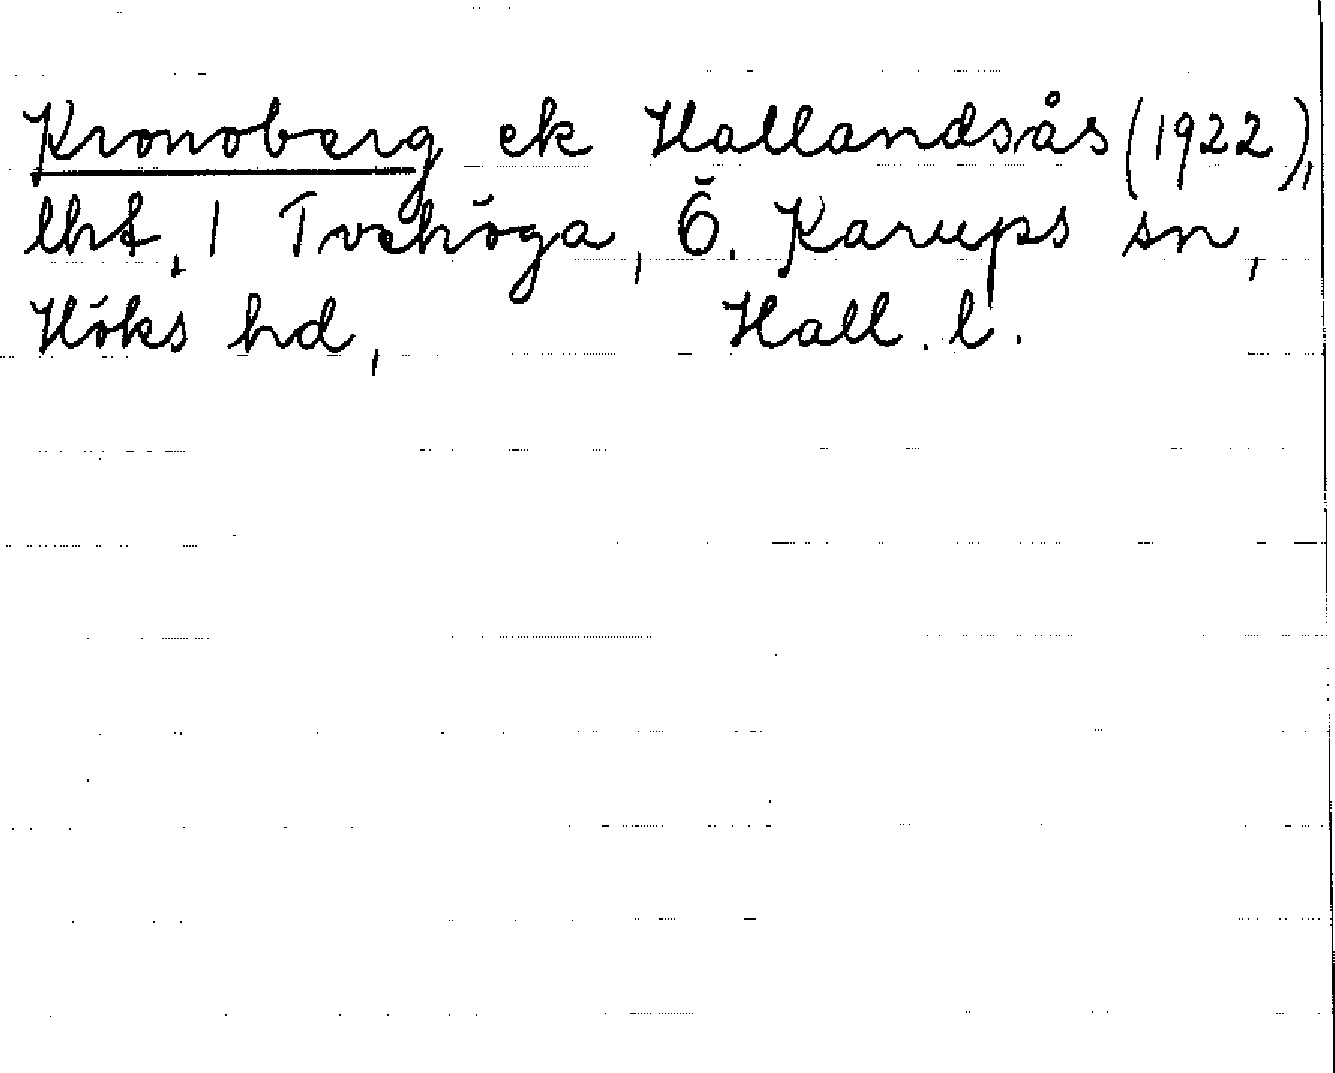 Kronoberg ek Hallandsås (1922),
lht, 1 Tvehöga, Ö. Karups sn,
Höks hd, Hall. l.